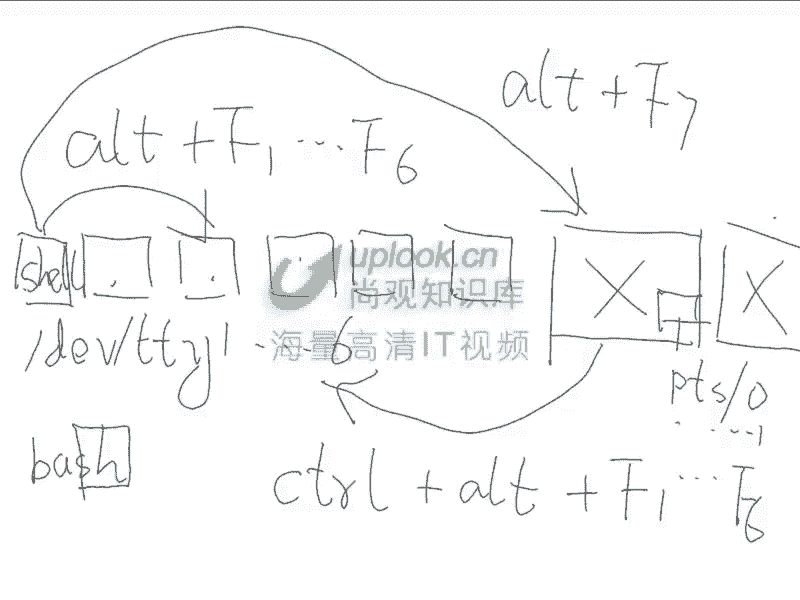 alt + F7
alt + F1 ... F6
shell
X
X
uplook.cn
尚观知识库
海量高清IT视频
/dev/tty1 ... 6
pts/0
.....1
bash
ctrl + alt + F1 ... F6